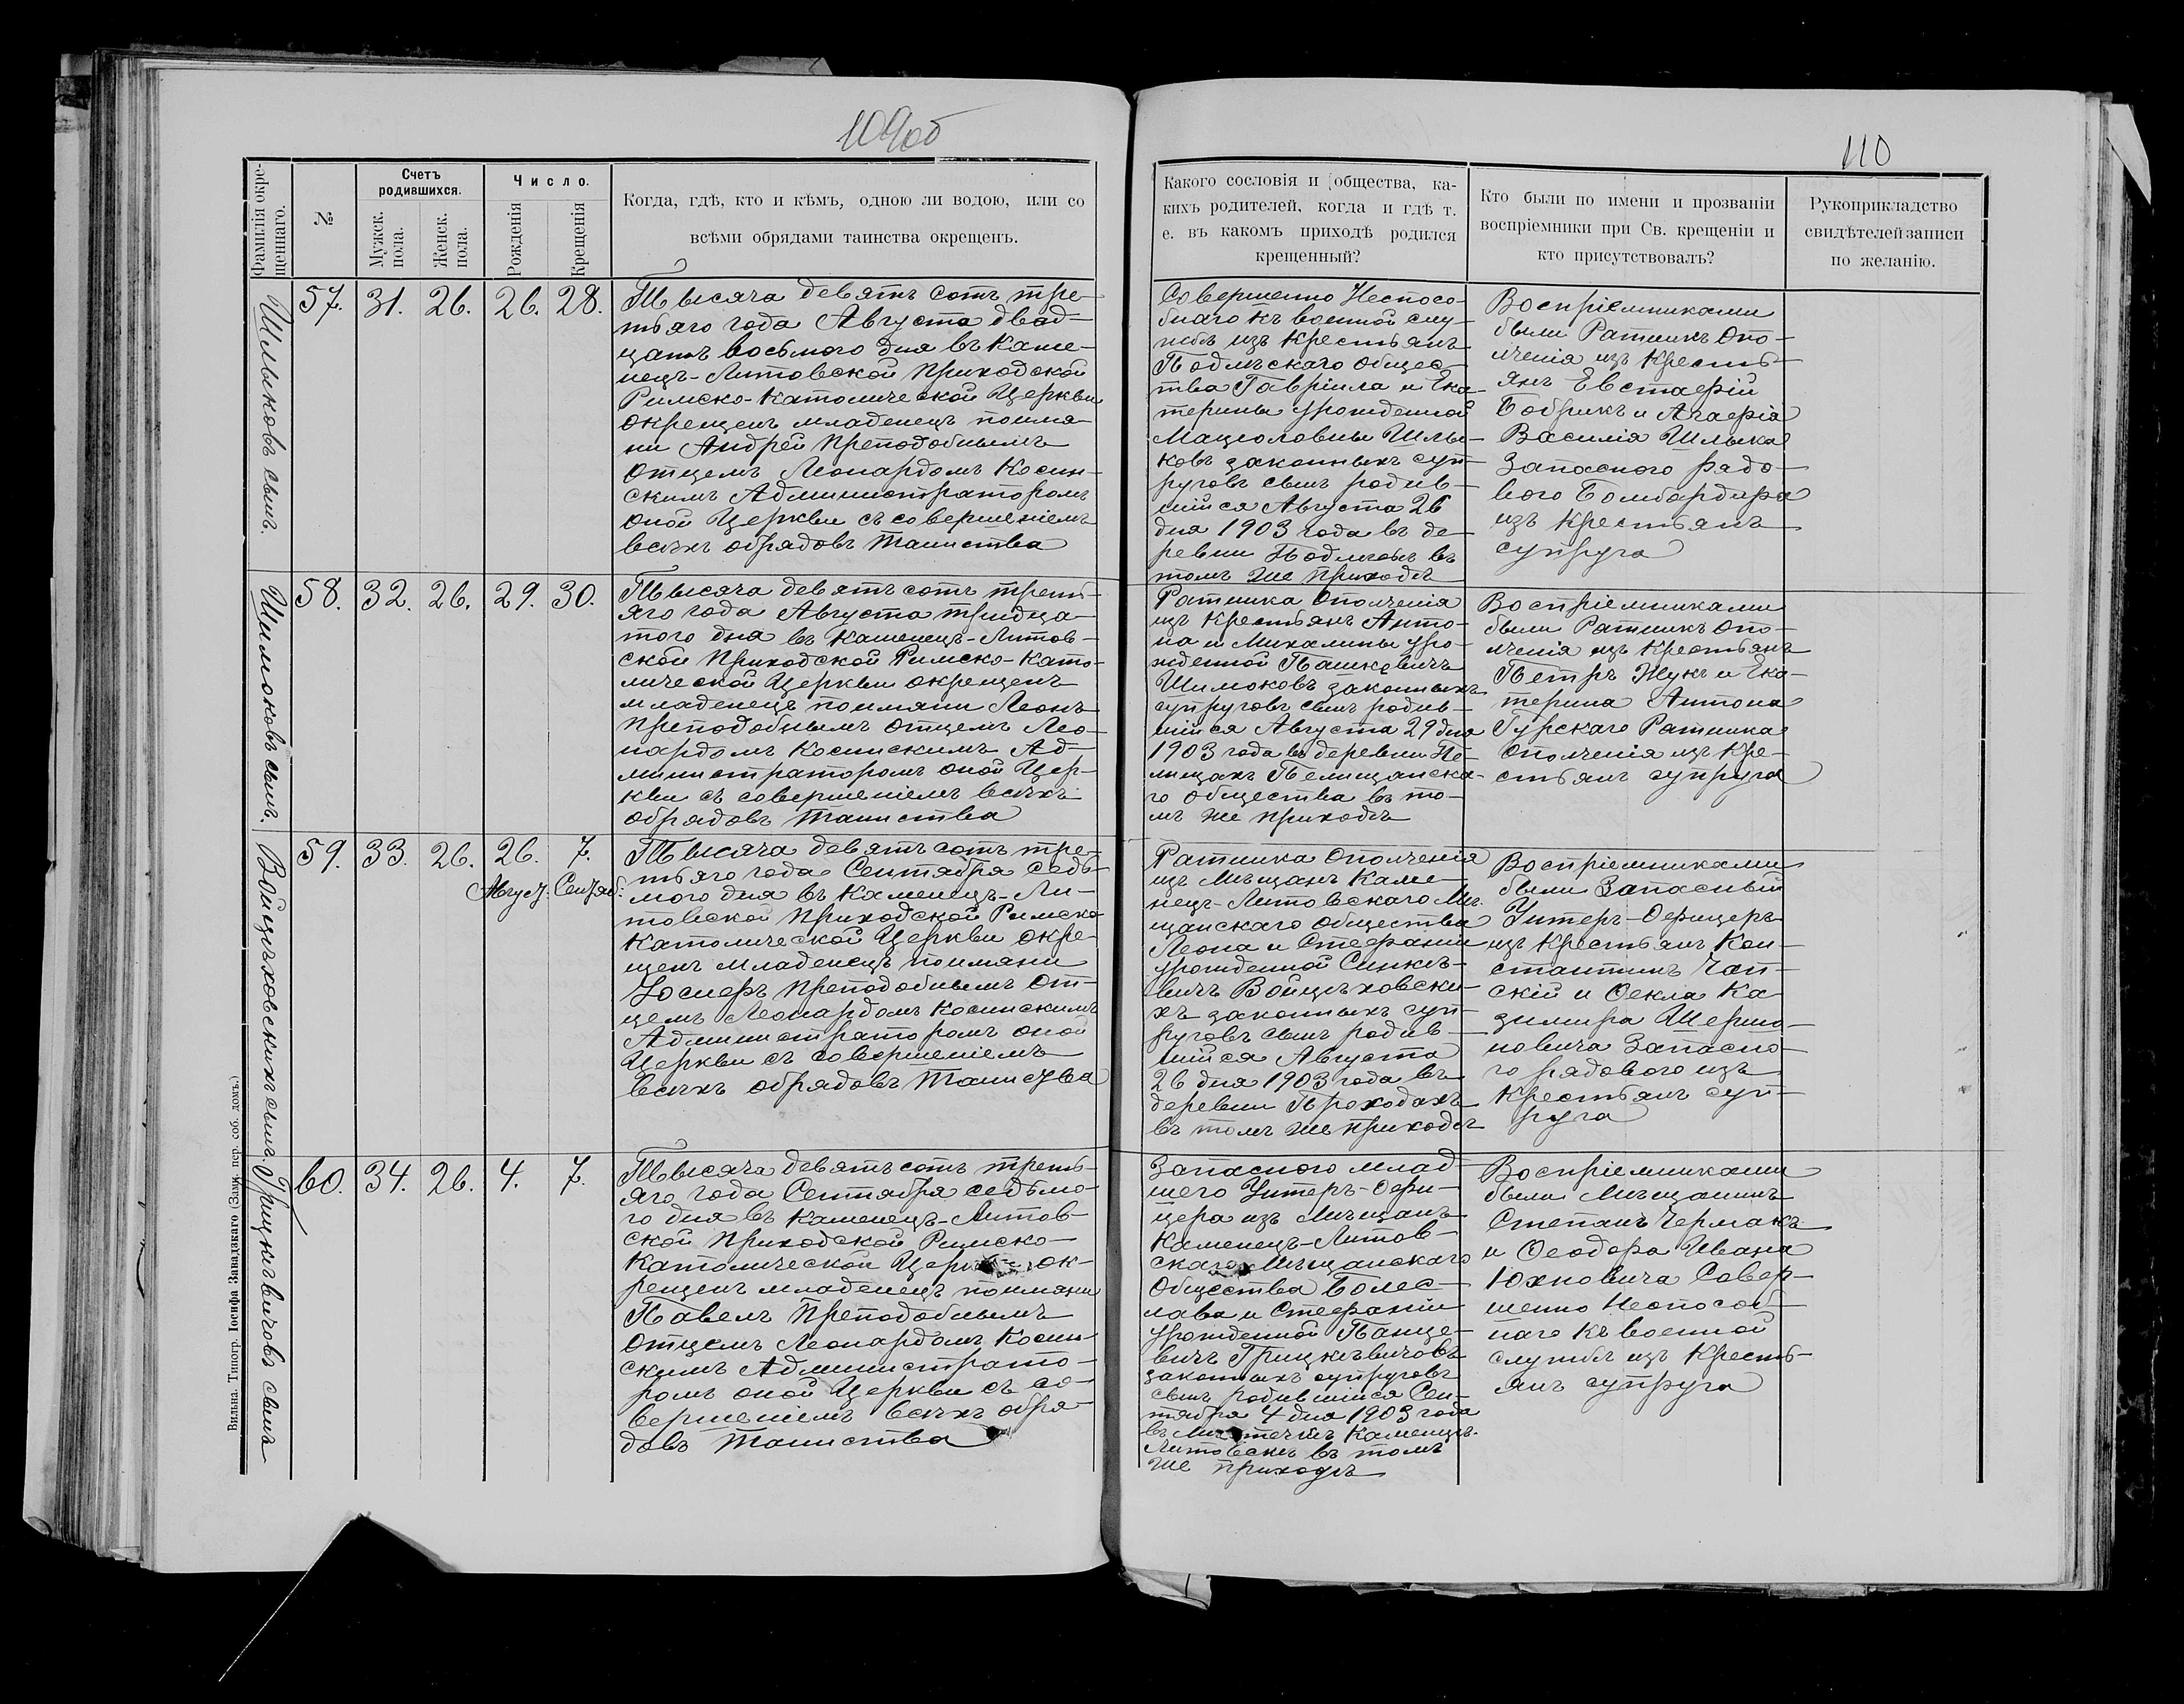 109об
110
Фамилія окре-
щеннаго.
№
Счетъ
родившихся.
Мужск.
пола.
Женск.
пола.
Число.
Рожденія
Крещенія
Когда, гдѣ, кто и кѣмъ, одною ли водою, или со
всѣми обрядами таинства окрещенъ.
Какого сословія и общества, ка-
кихъ родителей, когда и гдѣ т.
е. въ какомъ приходѣ родился
крещенный?
Кто были по имени и прозванiи
воспріемники при Св. крещеніи и
кто присутствовалъ?
Рукоприкладство
свидѣтелей записи
по желанію.
Шлыковъ сынъ.
57. 31. 26. 26. 28.
Тысяча девятъ сотъ тре-
тьяго года Августа двад-
цать восьмого дня въ Каме-
нецъ-Литовской приходской
Римско-Католической Церкви
окрещенъ младенецъ поимя-
ни Андрей Преподобнымъ
Отцемъ Леонардомъ Косин-
скимъ Администраторомъ
оной Церкви съ совершеніемъ
всѣхъ обрядовъ Таинства
Совершенно Неспосо-
бнаго къ военной слу-
жбѣ изъ крестьянъ
Подлѣскаго общес-
тва Гавріила и Ека-
терины урожденной
Мацоловны Шлы-
ковъ законныхъ суп-
руговъ сынъ родив-
шійся Августа 26
дня 1903 года въ де-
ревни Подлѣсье въ
томъ же приходѣ
Воспріемниками
были Ратникъ Опо-
лченія изъ Кресть-
янъ Евстафій
Бобрикъ и Агафія
Василія Шлыка
Запасного рядо-
вого Бомбардира
изъ Крестьянъ
супруга
Шимоковъ сынъ.
58. 32. 26. 29. 30.
Тысяча девятъ сотъ треть-
яго года Августа тридца-
того дня въ Каменецъ-Литов-
ской Приходской Римско-Като-
лической Церкви окрещенъ
младенецъ поимяни Леонъ
Преподобнымъ Отцемъ Лео-
нардомъ Косинскимъ Ад-
министраторомъ оной Цер-
кви съ совершеніемъ всѣхъ
обрядовъ Таинства
Ратника Ополченія
изъ Крестьянъ Анто-
на и Михалины уро-
жденной Пашкевичъ
Шимоковъ законныхъ
супруговъ сынъ родив-
шійся Августа 29 дня
1903 года въ деревни Пе-
лищахъ Пелищанска-
го общества въ то-
мъ же приходѣ
Воспріемниками
были Ратникъ Опо-
лченія изъ Крестьянъ
Петръ Жукъ и Ека-
терина Антона
Гурскаго Ратника
Ополченія изъ Кре-
стьянъ супруга
Войцѣховскихъ сынъ.
59. 33. 26. 26. 7.
Август. Сентяб:
Тысяча девятъ сотъ тре-
тьяго года Сентября седь-
мого дня въ Каменецъ-Ли-
товской Приходской Римско
Католической Церкви окре-
щенъ младенецъ поимяни
Іосифъ Преподобнымъ От-
цемъ Леонардомъ Косинскимъ
Администраторомъ оной
Церкви съ совершеніемъ
всѣхъ обрядовъ Таинства
Ратника Ополченія
изъ Мѣщанъ Каме-
нецъ-Литовскаго Мѣ-
щанскаго общества
Леона и Стефаніи
урожденной Синкѣ-
вичъ Войцѣховски-
хъ законныхъ суп-
руговъ сынъ родив-
шійся Августа
26 дня 1903 года въ
деревни Проходахъ
въ томъ же приходѣ
Воспріемниками
были Запасный
Унтеръ-Офицеръ
изъ Крестьянъ Кон-
стантинъ Чап-
скій и Өекла Ка-
зимира Шермо-
новича Запасно-
го рядового изъ
Крестьянъ суп-
руга
Грицкѣвичовъ сынъ
60. 34. 26. 4. 7.
Тысяча девятъ сотъ треть-
яго года Сентября седьмо-
го дня въ Каменецъ-Литов-
ской Приходской Римско-
Католической Церкви ок-
рещенъ младенецъ поимяни
Павелъ Преподобнымъ
Отцемъ Леонардомъ Косин-
скимъ Администрато-
ромъ оной Церкви съ со-
вершеніемъ всѣхъ обря-
довъ Таинства
Запасного млад-
шего Унтеръ-Офи-
цера изъ Мѣщанъ
Каменецъ-Литов-
скаго Мѣщанскаго
Общества Болес-
лава и Стефаніи
урожденной Панце-
вичъ Грицкѣвичовъ
законныхъ супруговъ
сынъ родившійся Сен-
тября 4 дня 1903 года
въ Мѣстечкѣ Каменцѣ-
Литовскѣ въ томъ
же приходѣ
Воспріемниками
были Мѣщанинъ
Степанъ Чермакъ
и Өеодора Ивана
Юхновича Совер-
шенно Неспособ-
наго къ военной
службѣ изъ Кресть-
янъ супруга
Вильна. Типогр. Іосифа Завадзкаго (Замк. пер. соб. домъ.)